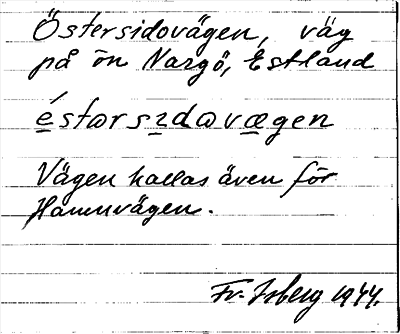 Östersidovägen, väg
på ön Nargö, Estland
éstərsıdωvægen
Vägen kallas även för
Hamnvägen.
Fr. Isberg 1944.